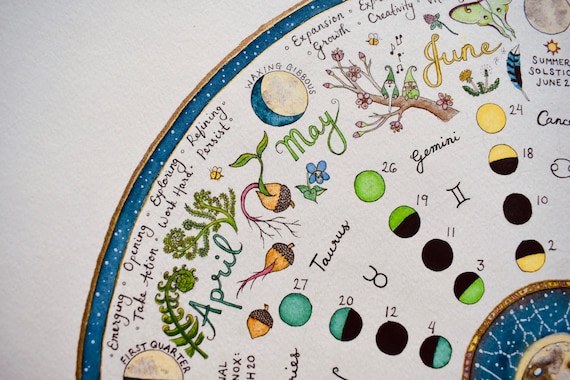 ° Expansion ° Exp
° Growth ° Creativity °
June
SUMMER
SOLSTIC
JUNE 2
WAXING GIBBOUS
May
° Exploring ° Refining °
° Work Hard ° Persist °
Emerging ° Opening
° Take Action
April
FIRST QUARTER
NOX:
H20
24
Cance
18
10
2
Gemini
26
19
11
3
Taurus
27
20
12
4
ries